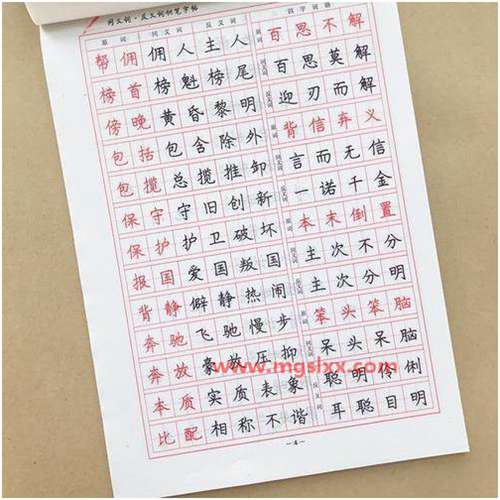 同义词·反义词钢笔字帖
原词 同义词 反义词 四字词语
帮佣 佣人 主人 原词 百思不解
榜首 榜魁 榜尾 同义词 百思莫解
傍晚 黄昏 黎明 反义词 迎刃而解
包括 包含 除外 原词 背信弃义
包揽 总揽 推卸 同义词 言而无信
保守 守旧 创新 反义词 一诺千金
保护 护卫 破坏 原词 本末倒置
报国 爱国 叛国 同义词 主次不分
背静 僻静 热闹 反义词 主次分明
奔驰 飞驰 慢步 原词 笨头笨脑
奔放 豪放 压抑 同义词 呆头呆脑
本质 实质 表象 反义词 聪明伶俐
比配 相称 不谐 耳聪目明
www.mgslxx.com
—4—